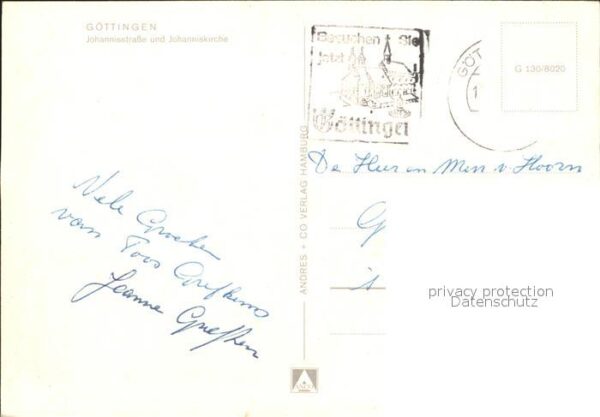 GÖTTINGEN
Johannisstraße und Johanniskirche
Besuchen Sie
jetzt
Göttingen
GÖT
1
G 130/8020
ANDRES + CO VERLAG HAMBURG
De Heer en Mevr v Hoorn
G
Vele Groeten
van Toos
Jeanne
privacy protection
Datenschutz